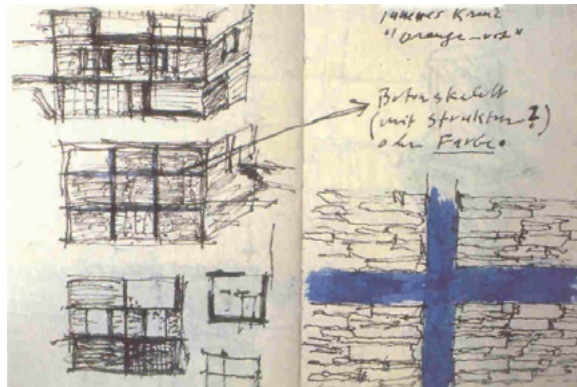 inneres Kreuz
"Orange-rot"
Betonskelett
(mit Struktur?)
oder Farbe.